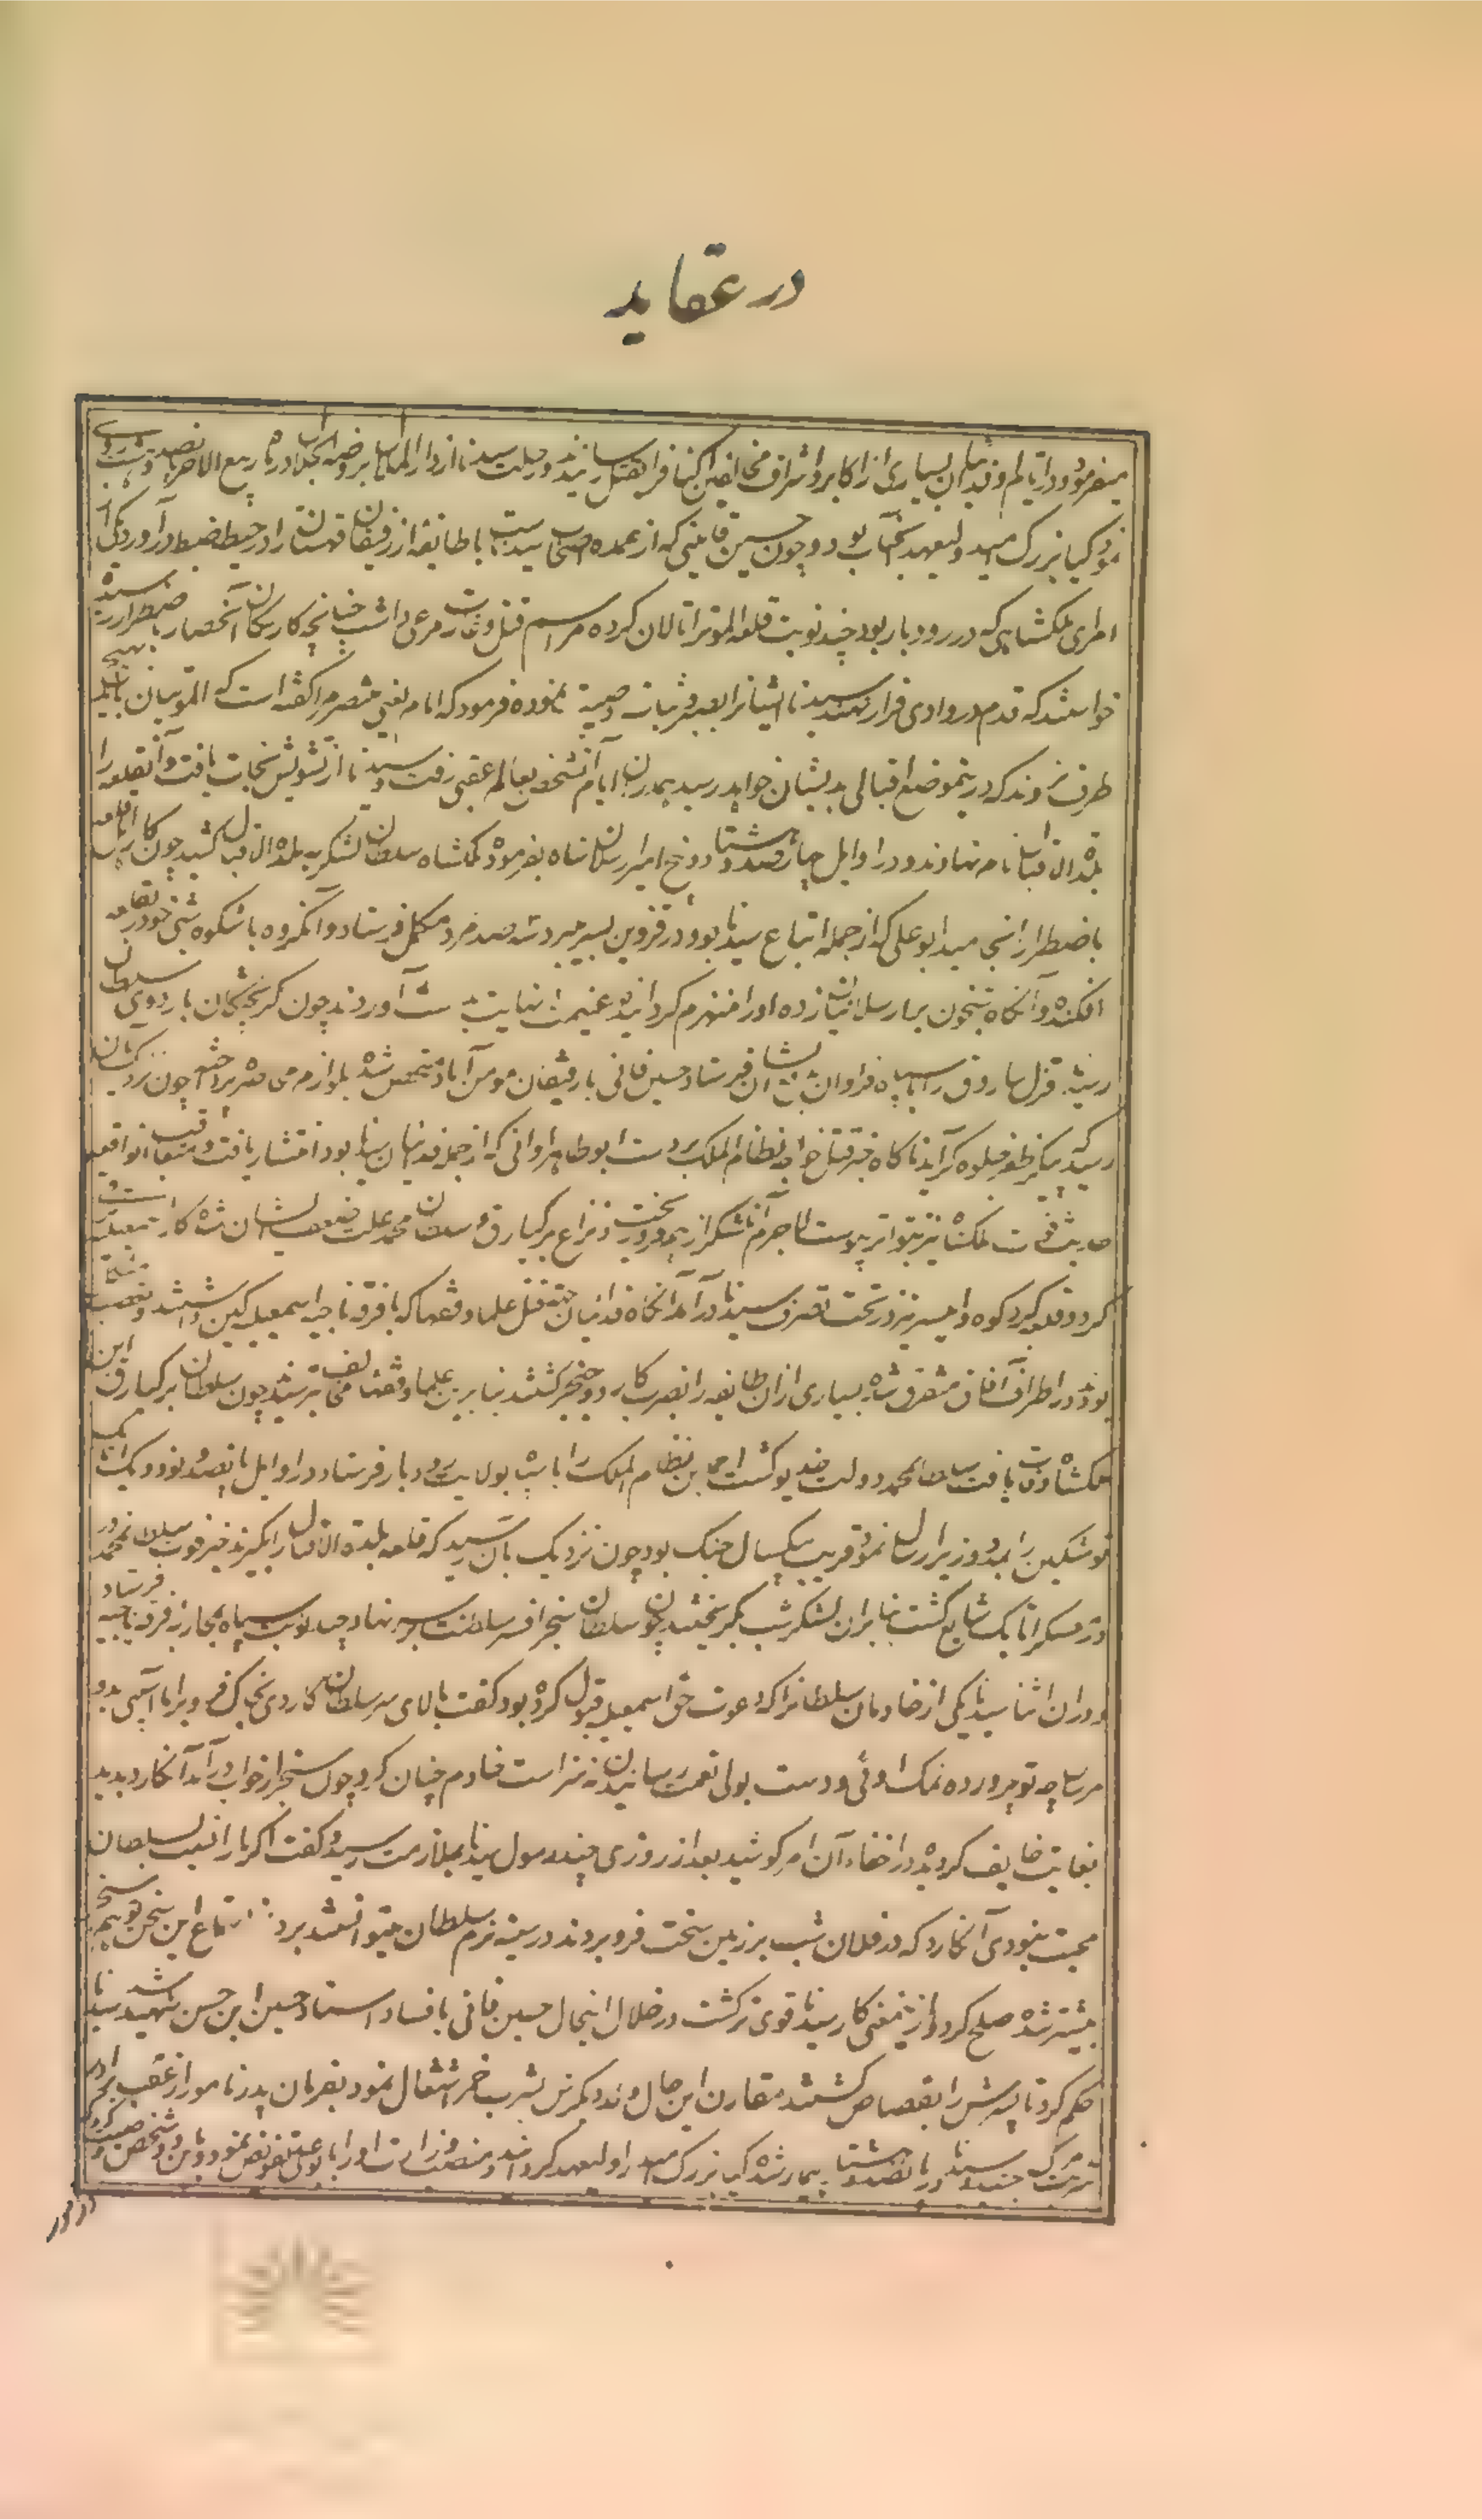 در عقاید
میفرمود و در ایام او فدائیان بسیاری از اکابر و اشراف مخالفین را کتاره بقتل رسانیدند و رحلت سیدنا از دار الملال بروضه الجلال در ماه ربیع الاخر
نمود کیا بزرگ امید ولیعهد آنجناب بود و چون حسین قاینی که از عمده اصحاب سیدنا است با طائفه از رفیقان قهستان را در حیطه ضبط درآورد یکی از
امرای ملکشاهی که در رودبار بود چند نوبت قلعه الموت را تالان کرده مراسم قتل و غارت مرعی داشت چنانچه کار ساکنان آنحصار باضطرار رسیده
خواستند که قدم در وادی فرار نهند سیدنا ایشانرا بصبر و ثبات وصیت نموده فرمود که امام یعنی مستنصر مرا گفته است که الموتیان باید بهیچ
طرف نروند که درینموضع اقبالی بدیشان خواهد رسید همدران ایام آنشخص بعالم عقبی رفت و سیدنا از تشویش نجات یافت و آنقلعه را
بلدة الاقبال نام نهادند و در اوایل چهارصد و هشتاد و پنج امیر ارسلان تاش بفرموده ملکشاه سلطان لشکر به بلدة الاقبال کشید چون کار اهل قلعه
باضطرار انجامید ابوعلی که از جمله اتباع سیدنا بود و در قزوین بسر میبرد سه صد مرد مکمل فرستاد و آنگروه باشکوه شبی خود را در قلعه
افکنده و آنگاه شبخون بر ارسلان تاش زده او را منهزم گردانیدند و غنیمت بینهایت بدست آوردند چون گریختگان باردوی سلطان
رسیدند قزل ساروق را با سپاه فراوان بقهستان فرستاد حسین قاینی با رفیقان در مومن آباد متحصن شده بلوازم محاصره پرداختند چون نزدیک بان
رسید که پیکر ظفر جلوه گر آید ناگاه خبر قتل خواجه نظام الملک بر دست ابو طاهر اوانی که از جمله فدائیان سیدنا بود انتشار یافت و متعاقب آنواقعه
حدیث وفات ملکشاه نیز بتواتر پیوست لاجرم آن لشکر از هم فرو ریخت و نزاع برکیارق و سلطان محمد علت ضعف ایشان شده کار اسمعیلیه
کرد و قلعه گرد کوه و لمسر نیز در تحت تصرف سیدنا درآمد آنگاه فدائیان جهة قتل علما و فقها که با فرقه ناجیه اسمعیلیه کین داشتند و تعصب
بودند در اطراف آفاق متفرق شده بسیاری ازان طایفه را بضرب کارد و خنجر کشتند بنا برین علما و فقها مخالف ترسیدند چون سلطان برکیارق ابن
ملکشاه وفات یافت سلطان محمد دولت خدیو گشت احمد بن نظام الملک را با سپاه بولایت رودبار فرستاد و در اوایل پانصد و نود و یک اتابک
نوشتکین را بمدد وزیر ارسال نمود قریب یکسال جنگ بود چون نزدیک بان رسید که قلعه بلدة الاقبال را بگیرند خبر فوت سلطان محمد
در عسکر اتابک شایع گشت بنابران لشکر شب بگریختند چون سلطان سنجر افسر سلطنت بر سر نهاد چند نوبت سپاه بمحاربه فرقه ناجیه فرستاد
و دران اثنا سیدنا یکی از خادمان سلطانرا که دعوت حق اسمعیلیه قبول کرده بود گفت بالای سر سلطان کاردی بخاک فرو بر اما آسیبی بدو
مرسان چه تو پرورده نمک اوئی و دست بولی نعمت رسانیدن نه سزاست خادم چنان کرد چون سنجر از خواب درآمد آنکارد بدید
بغایت خایف گردید و در اخفاء آن امر کوشید بعد از روزی چند رسول سیدنا بملازمت رسید و گفت اگر ما را نسبت بسلطان
محبت نبودی آنکارد که در فلان شب بر زمین سخت فرو بردند در سینه نرم سلطان میتوانستند برد از استماع این سخن توهم سنجر
بیشتر شده صلح کرد و ازینمعنی کار سیدنا قوی تر گشت در خلال اینحال حسین قاینی بافساد استاد حسین ابن حسن شهید شد سیدنا
حکم کرد تا پسرش را بقصاص کشتند مقارن این حال ولد دیگرش بشرب خمر اشتغال نمود بفرمان پدر نامور از عقب برادر
شربت مرگ چشید و سیدنا در پانصد و هشتاد بیمار شده کیا بزرگ امید را ولیعهد گردانید و منصب وزارت او را با بوعلی تفویض نمود و باین دو شخص وصیت کرد که